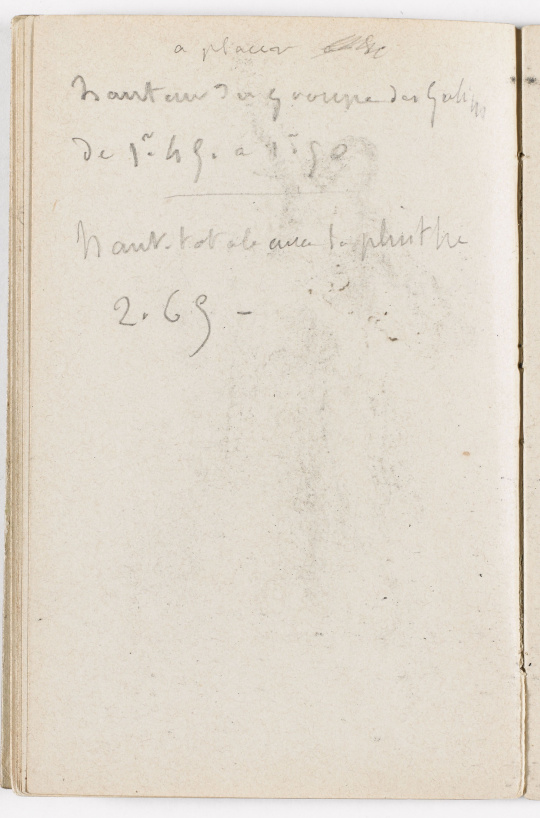 a placer
hauteur du groupe des
de 1m. 45. a 1m 50
haut. totale avec la plinthe
2. 65 -